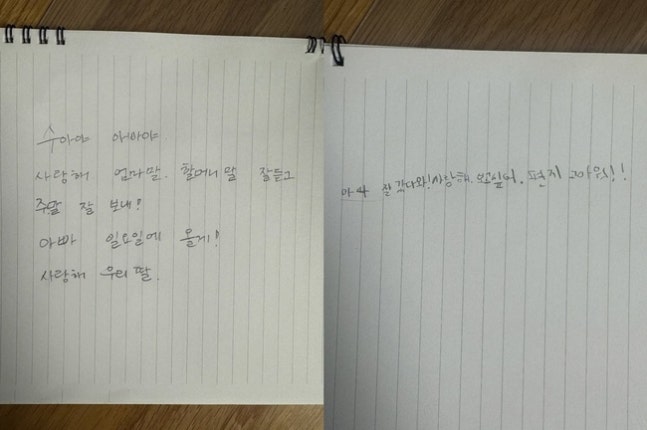 수아야 아빠야.
사랑해 엄마말. 할머니말 잘듣고
주말 잘 보내!
아빠 일요일에 올게!
사랑해 우리 딸.
아빠 잘 갔다와! 사랑해. 보고싶어. 편지 고마워!!